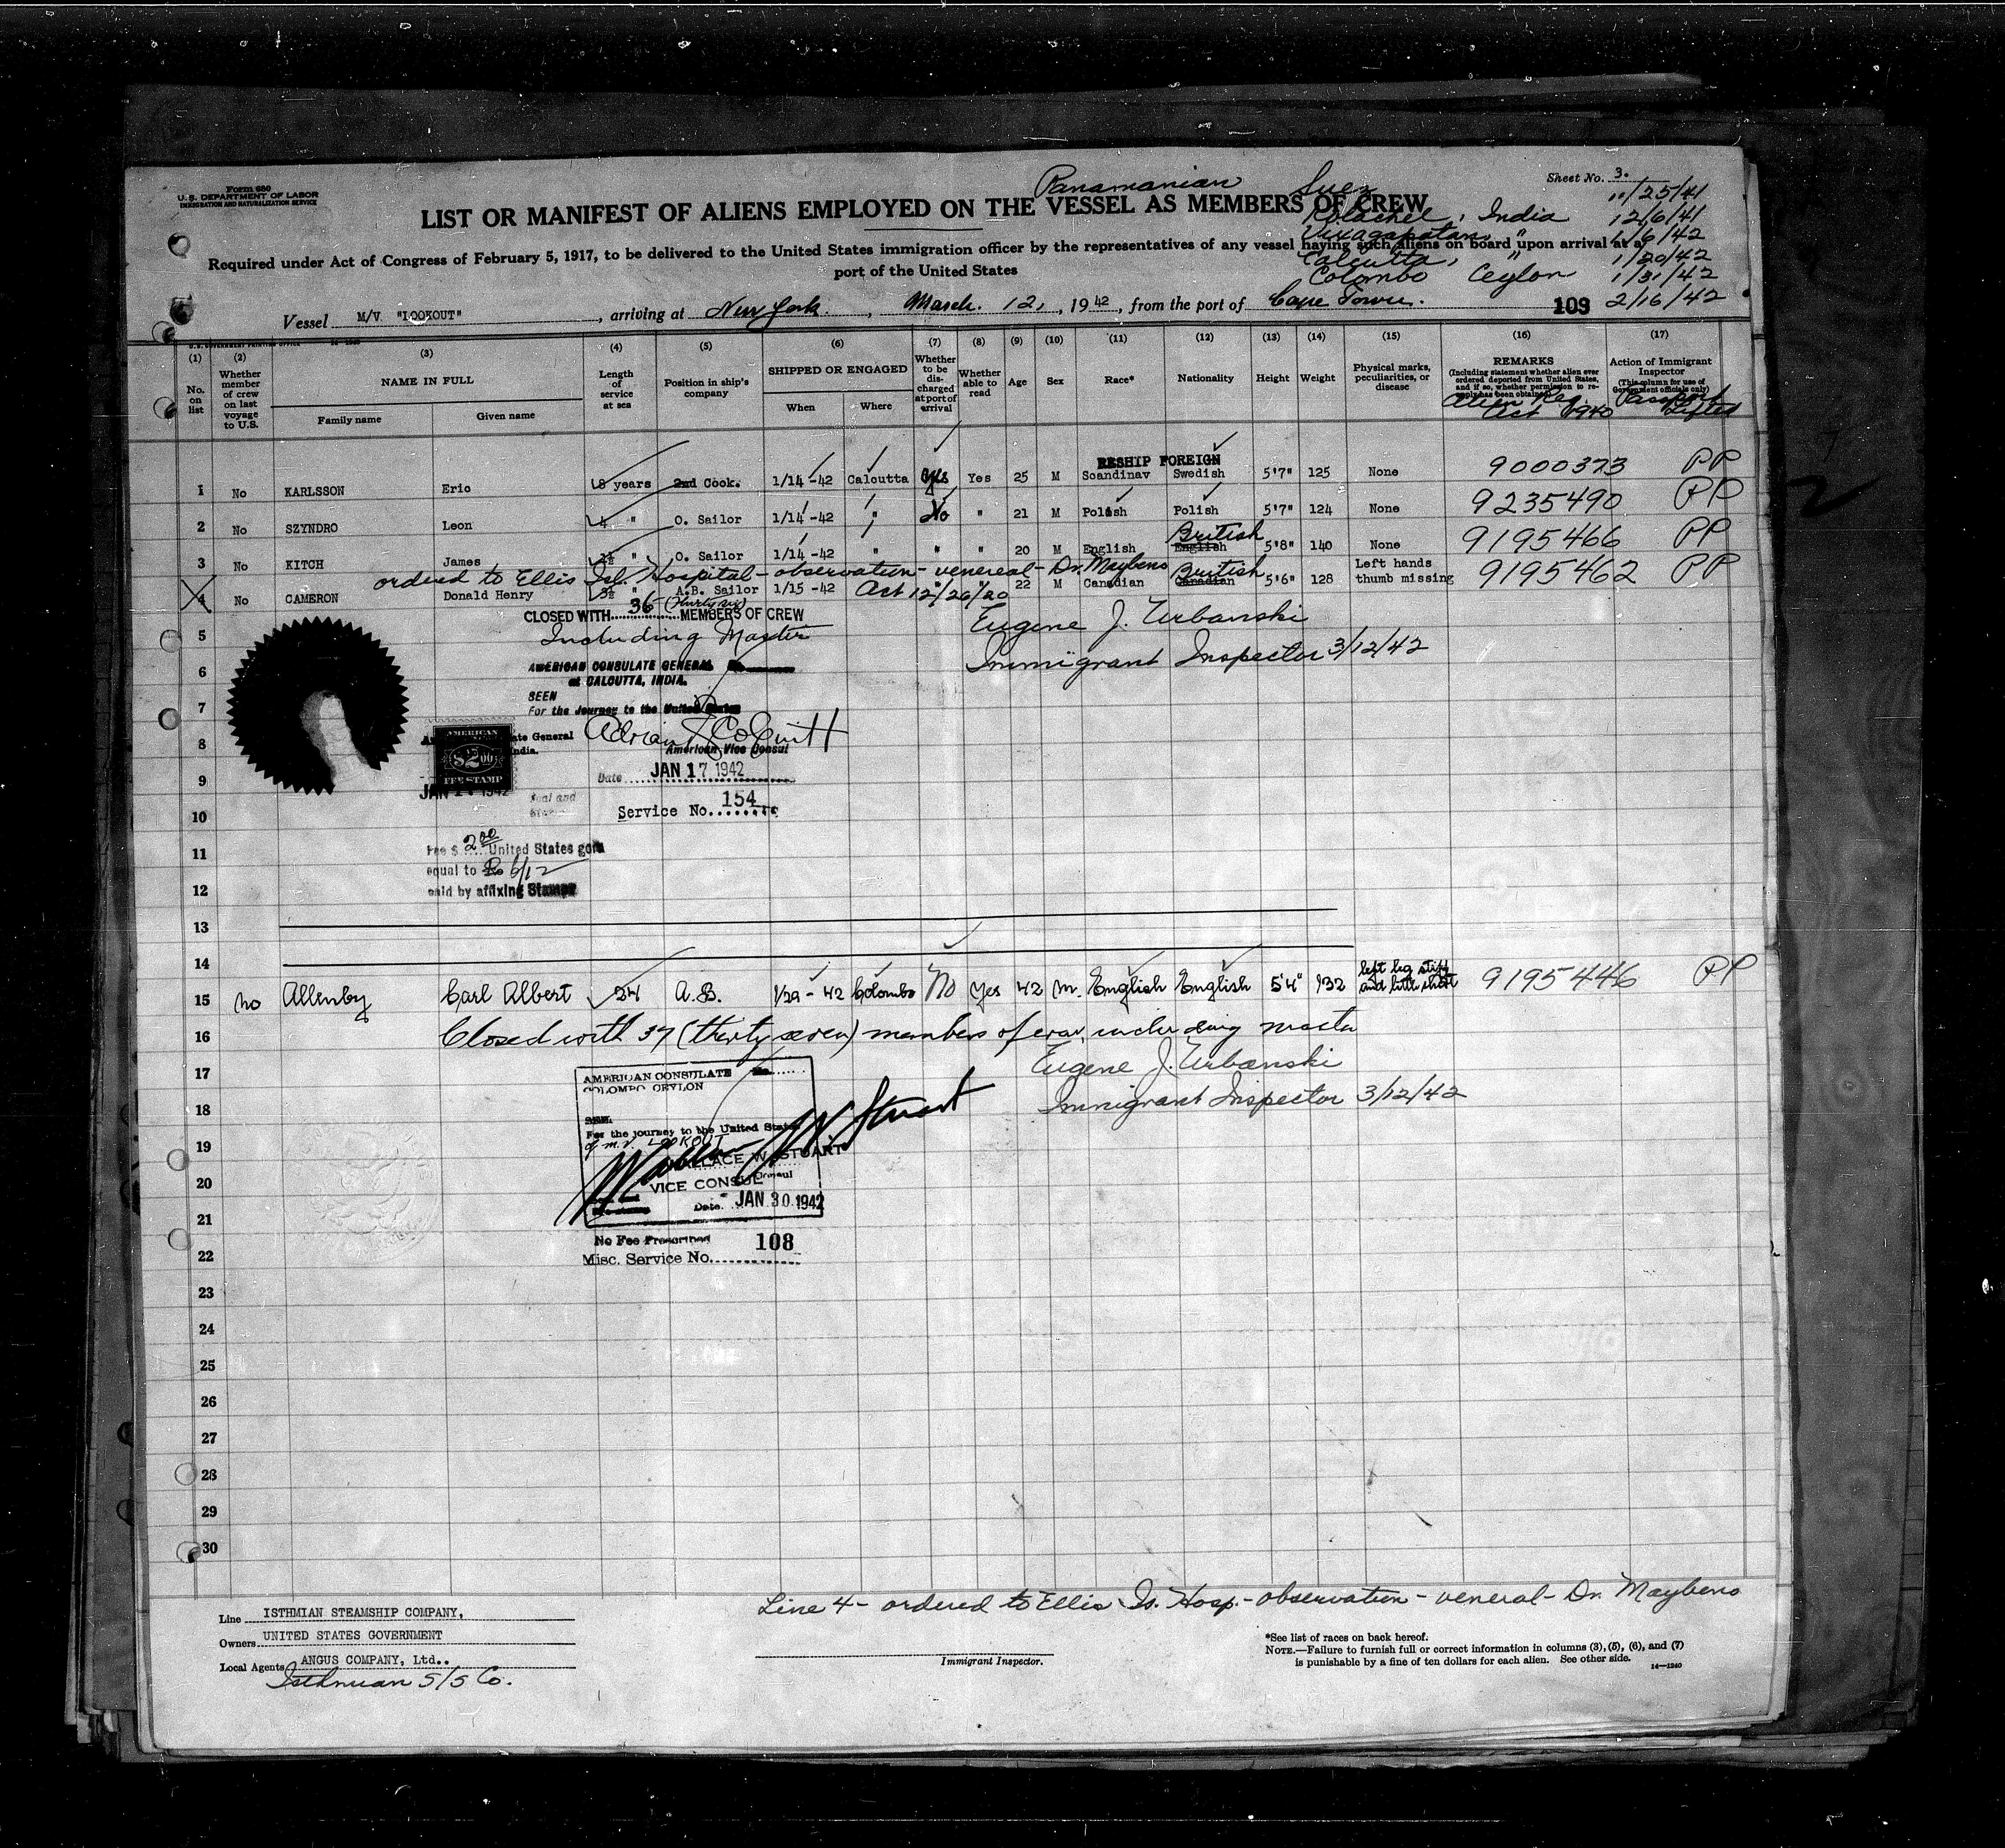 Form 680
U. S. DEPARTMENT OF LABOR
IMMIGRATION AND NATURALIZATION SERVICE
Sheet No. 3.
Panamanian
LIST OR MANIFEST OF ALIENS EMPLOYED ON THE VESSEL AS MEMBERS OF CREW
Suez 11/25/41
Kolachel, India 12/6/41
Vizagapatam " 1/6/42
Calcutta, " 1/20/42
Colombo Ceylon 1/31/42
2/16/42
Required under Act of Congress of February 5, 1917, to be delivered to the United States immigration officer by the representatives of any vessel having such aliens on board upon arrival at a
port of the United States
Vessel M/V "LOOKOUT", arriving at New York, March 12, 1942, from the port of Cape Town. 109
(1) (2) (3) (4) (5) (6) (7) (8) (9) (10) (11) (12) (13) (14) (15) (16) (17)
No. on list
Whether member of crew on last voyage to U.S.
NAME IN FULL
Family name Given name
Length of service at sea
Position in ship's company
SHIPPED OR ENGAGED
When Where
Whether to be discharged at port of arrival
Whether able to read
Age
Sex
Race*
Nationality
Height
Weight
Physical marks, peculiarities, or disease
REMARKS
(Including statement whether alien ever ordered deported from United States, and if so, whether permission to reapply has been obtained)
Alien Reg. Act 1940
Action of Immigrant Inspector
(This column for use of Government officials only)
Passport Lifted
RESHIP FOREIGN
1 No KARLSSON Eric 8 years 2nd Cook. 1/14-42 Calcutta Yes Yes 25 M Scandinav Swedish 5'7" 125 None 9000373 PP
2 No SZYNDRO Leon 4 " O. Sailor 1/14-42 " No " 21 M Polish Polish 5'7" 124 None 9235490 PP
3 No KITCH James " O. Sailor 1/14-42 " " " 20 M English English British 5'8" 140 None 9195466 PP
ordered to Ellis Isl. Hospital - observation - venereal - Dr. Maybens
4 No CAMERON Donald Henry 3½ " A.B. Sailor 1/15-42 Act 12/26/20 22 M Canadian Canadian British 5'6" 128 Left hands thumb missing 9195462 PP
CLOSED WITH 36 (thirty six) MEMBERS OF CREW
Including Master
Eugene J. Urbanski
Immigrant Inspector 3/12/42
5
6
7
8
9
10
11
12
13
14
AMERICAN CONSULATE GENERAL
at CALCUTTA, INDIA.
SEEN
For the Journey to the United States
American Vice Consul
Date JAN 17 1942
Service No. 154
AMERICAN
$2.00
FEE STAMP
Fee $ 2.00 United States gold
equal to Rs 6/12
paid by affixing Stamps
15 no Allenby Carl Albert 24 A.B. 1/29-42 Colombo No Yes 42 M. English English 5'4" 132 left leg stiff and little short 9195446 PP
16 Closed with 37 (thirty seven) members of crew, including master
Eugene J. Urbanski
Immigrant Inspector 3/12/42
17
18
19
20
21
22
23
24
25
26
27
28
29
30
AMERICAN CONSULATE No.
COLOMBO CEYLON
SEEN
For the journey to the United States
of m.v. LOOKOUT
WALLACE W. STUART
VICE CONSUL
Date JAN 30 1942
No Fee Prescribed
Misc. Service No. 108
Line 4 - ordered to Ellis Is. Hosp. - observation - veneral - Dr. Maybens
Line ISTHMIAN STEAMSHIP COMPANY,
Owners UNITED STATES GOVERNMENT
Local Agents ANGUS COMPANY, Ltd..
Isthmian S/S Co.
Immigrant Inspector.
*See list of races on back hereof.
NOTE.—Failure to furnish full or correct information in columns (3), (5), (6), and (7)
is punishable by a fine of ten dollars for each alien. See other side.
14—1240